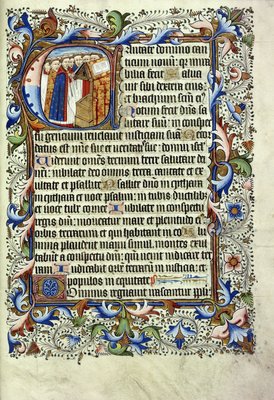 Cantate domino can
ticum nouum: q̃ mira
bilia fecit Salua
uit sibi dextera eius:
et brachium sctm̃ eꝰ
Notum fecit dñs sa
lutare suũ: in conspectu
gencium reuelauit iusticiam suã Recor
datus est mie sue: et ueritatis sue domui isrl̃
Uiderunt omẽs termini terre salutare dei
nri̇ Iubilate deo omnis terra: cantate et ex
ultate et psallite Psallite dño in cythara
in cythara et uoce psalmi: in tubis ductilibꝰ
et uoce tube cornee Iubilate in conspectu
regis dñi: moueatur mare et plenitudo eiꝰ
orbis terrarum et qui habitant in eo Flu
mina plaudent manu simul: montes exul
tabunt a conspectu dñi: qm̃ uenit iudicare ter
ram Iudicabit orbẽ terrarum in iusticia: et
populos in equitate
Dominus regnauit irascantur ppli: